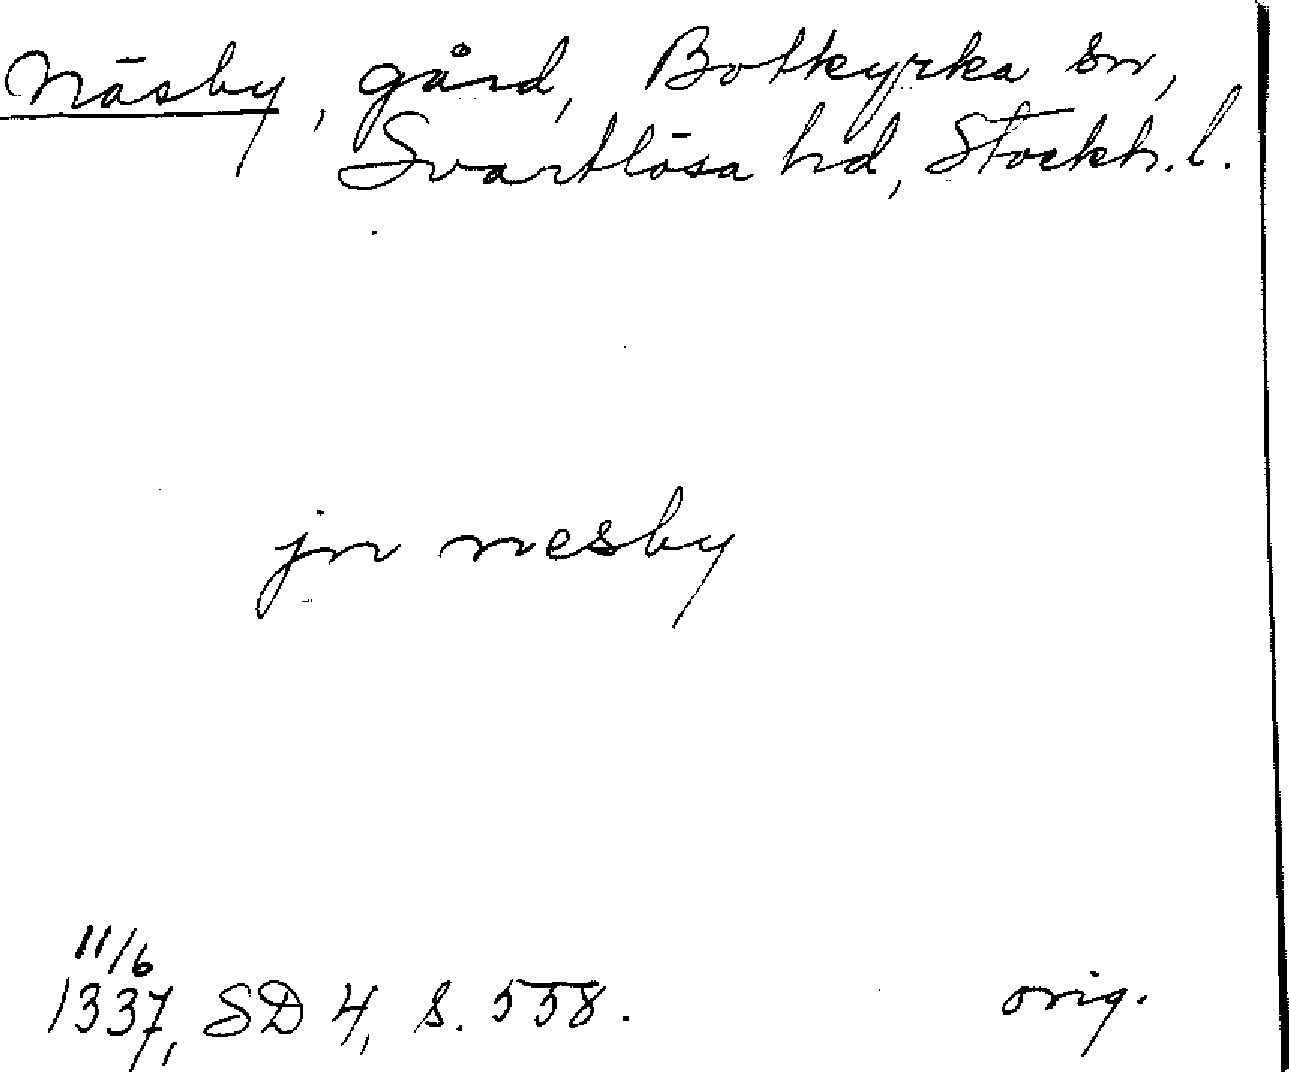 Näsby, gård, Botkyrka sn,
Svartlösa hd, Stockh. l.
jn nesby
11/6
1337, SD 4, s. 558.
orig.